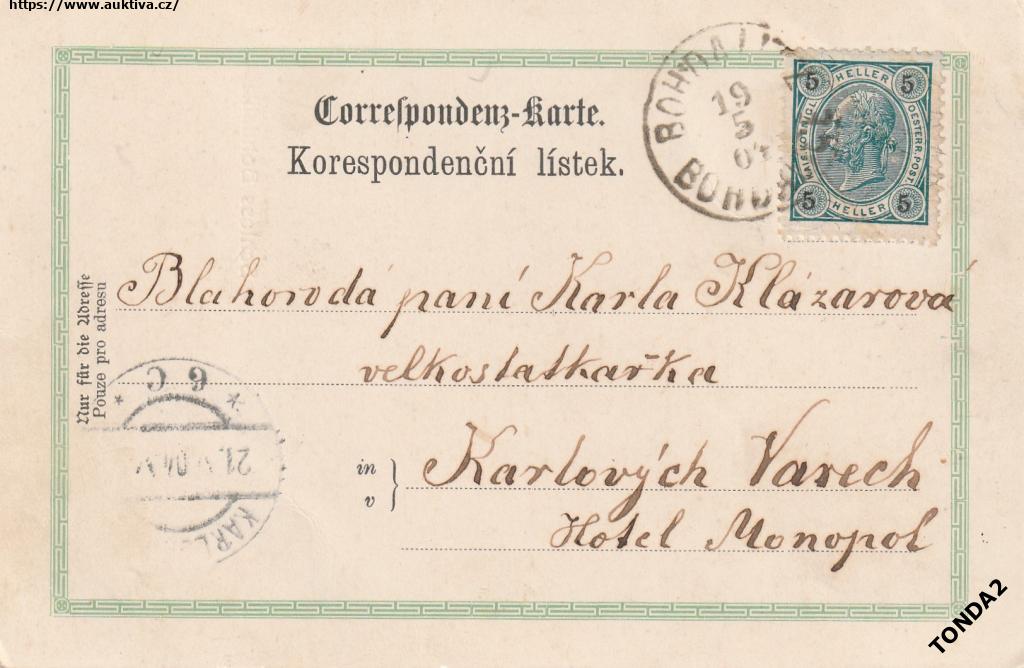 https://www.auktiva.cz/
Correspondenz-Karte.
Korespondenční lístek.
BOHDA
19
5
04
BOHDA
5 HELLER 5
KAIS. KOENIGL. OESTERR. POST.
5 HELLER 5
Nur für die Adresse
Pouze pro adresu
Blahorodá paní Karla Klázarová
velkostatkařka
in
v
Karlových Varech
Hotel Monopol
* 6 C *
21. V 04
KARL
TONDA2